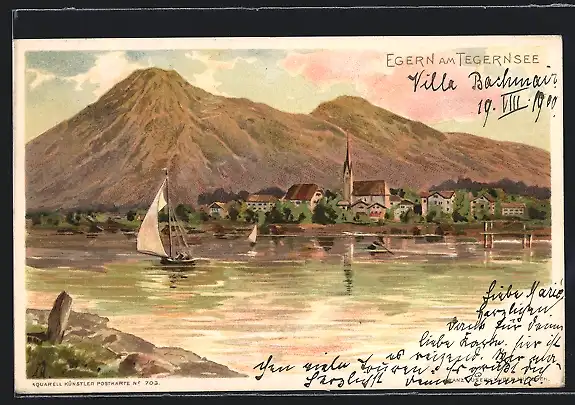 EGERN AM TEGERNSEE
Villa Bachmair
19. VIII. 1900
Liebe Marie
Herzlichen
Dank für Deine
liebe Karte. hier ist
es reizend. Wir
viele Touren. Es grüßt dich
herzlichst deine
AQUARELL KÜNSTLER POSTKARTE Nº 703.